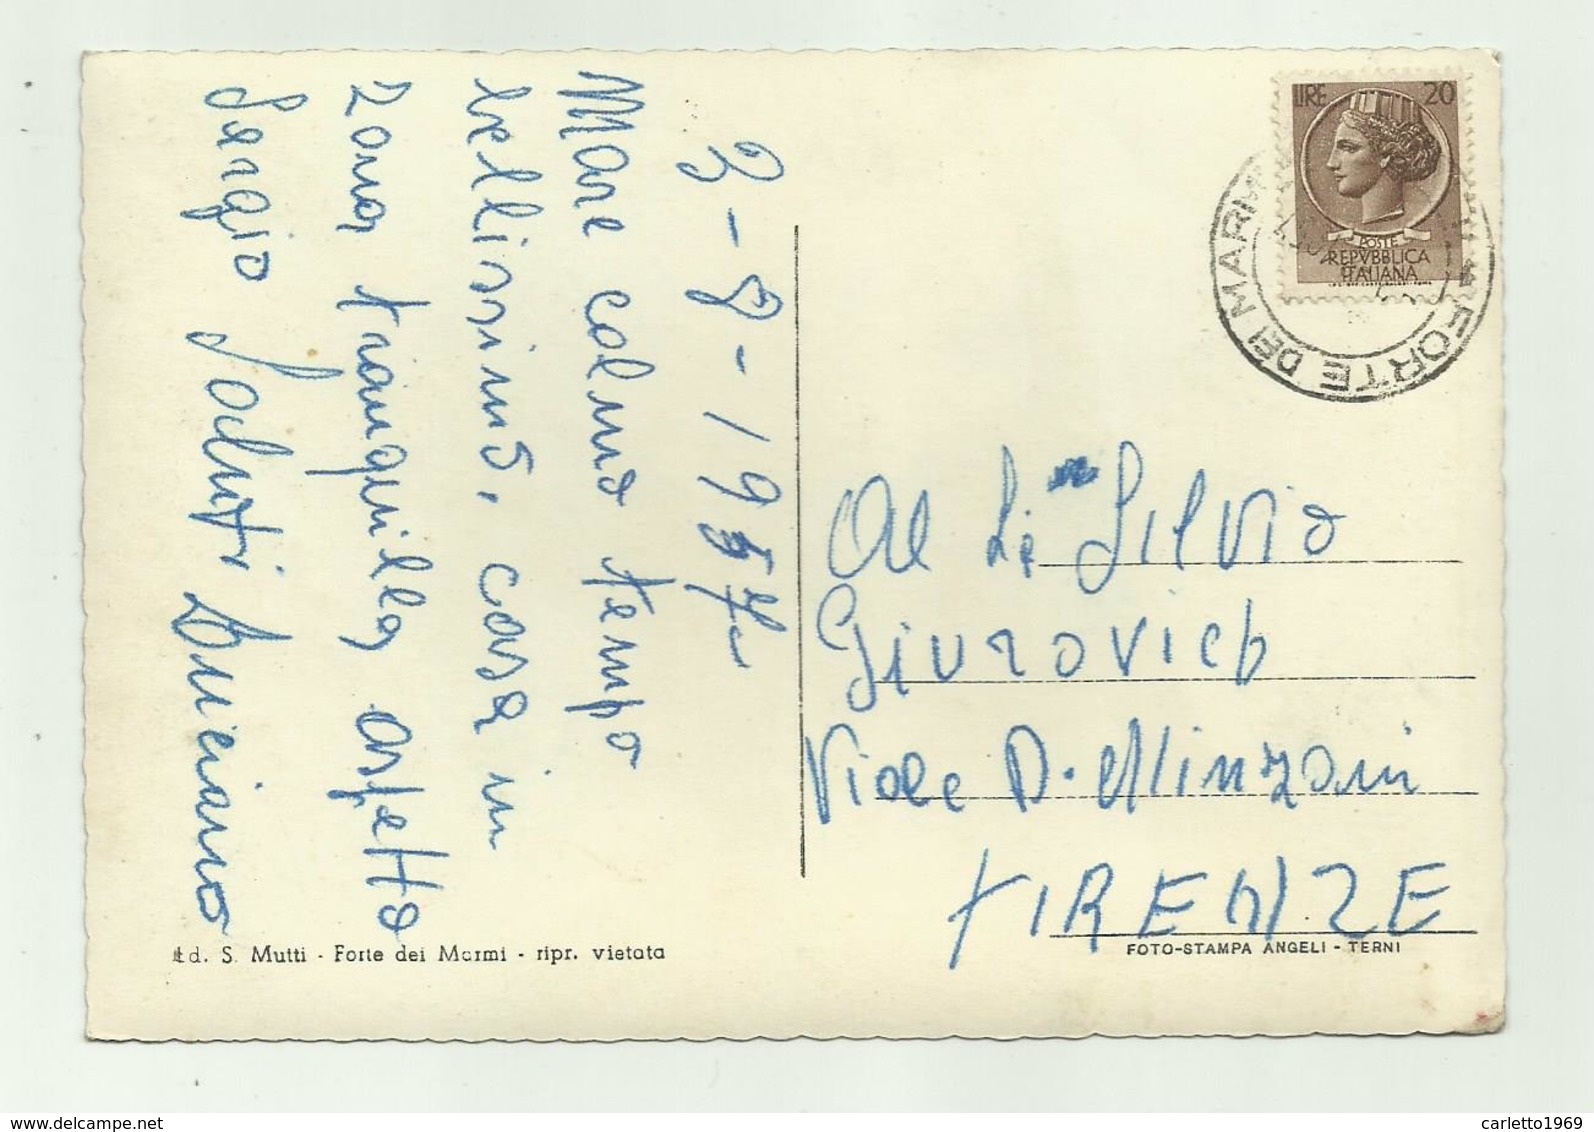 3-8-195
Mare calmo tempo
bellissimo, casa in
zona tranquilla aspetto
Sergio Saluti Luciano
LIRE 20
POSTE
REPVBBLICA
ITALIANA
FORTE DEI MARMI
Al Sig Silvio
Giurovich
Viale D. Minzoni
FIRENZE
Ed. S. Mutti - Forte dei Marmi - ripr. vietata
FOTO-STAMPA ANGELI - TERNI
carletto1969